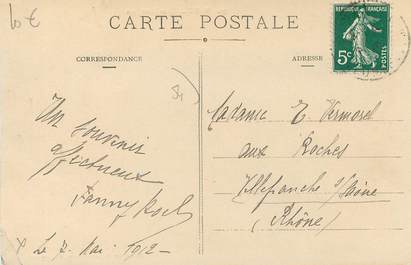 10 €
CARTE POSTALE
CORRESPONDANCE
ADRESSE
REPUBLIQUE FRANÇAISE
5c
POSTES
Un souvenir
affectueux
Fanny
Le 7 Mai 1912
Madame E. Vermorel
aux Roches
Villefranche s/Saône
(Rhône)